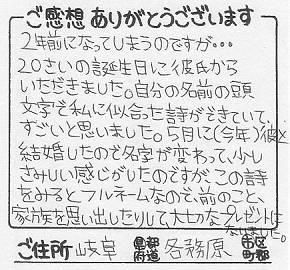 ご感想 ありがとうございます
2年前になってしまうのですが・・・
20さいの誕生日に彼氏から
いただきました。自分の名前の頭
文字で私に似合った詩ができていて、
すごいと思いました。5月に(今年)彼と
結婚したので名字が変わって、少し
さみしい感じがしたのですが、この詩
をみるとフルネームなので、前のこと、
家族を思い出したりして、大切なプレゼントに
なりました。
ご住所 岐阜 都道府県 各務原 市区町郡